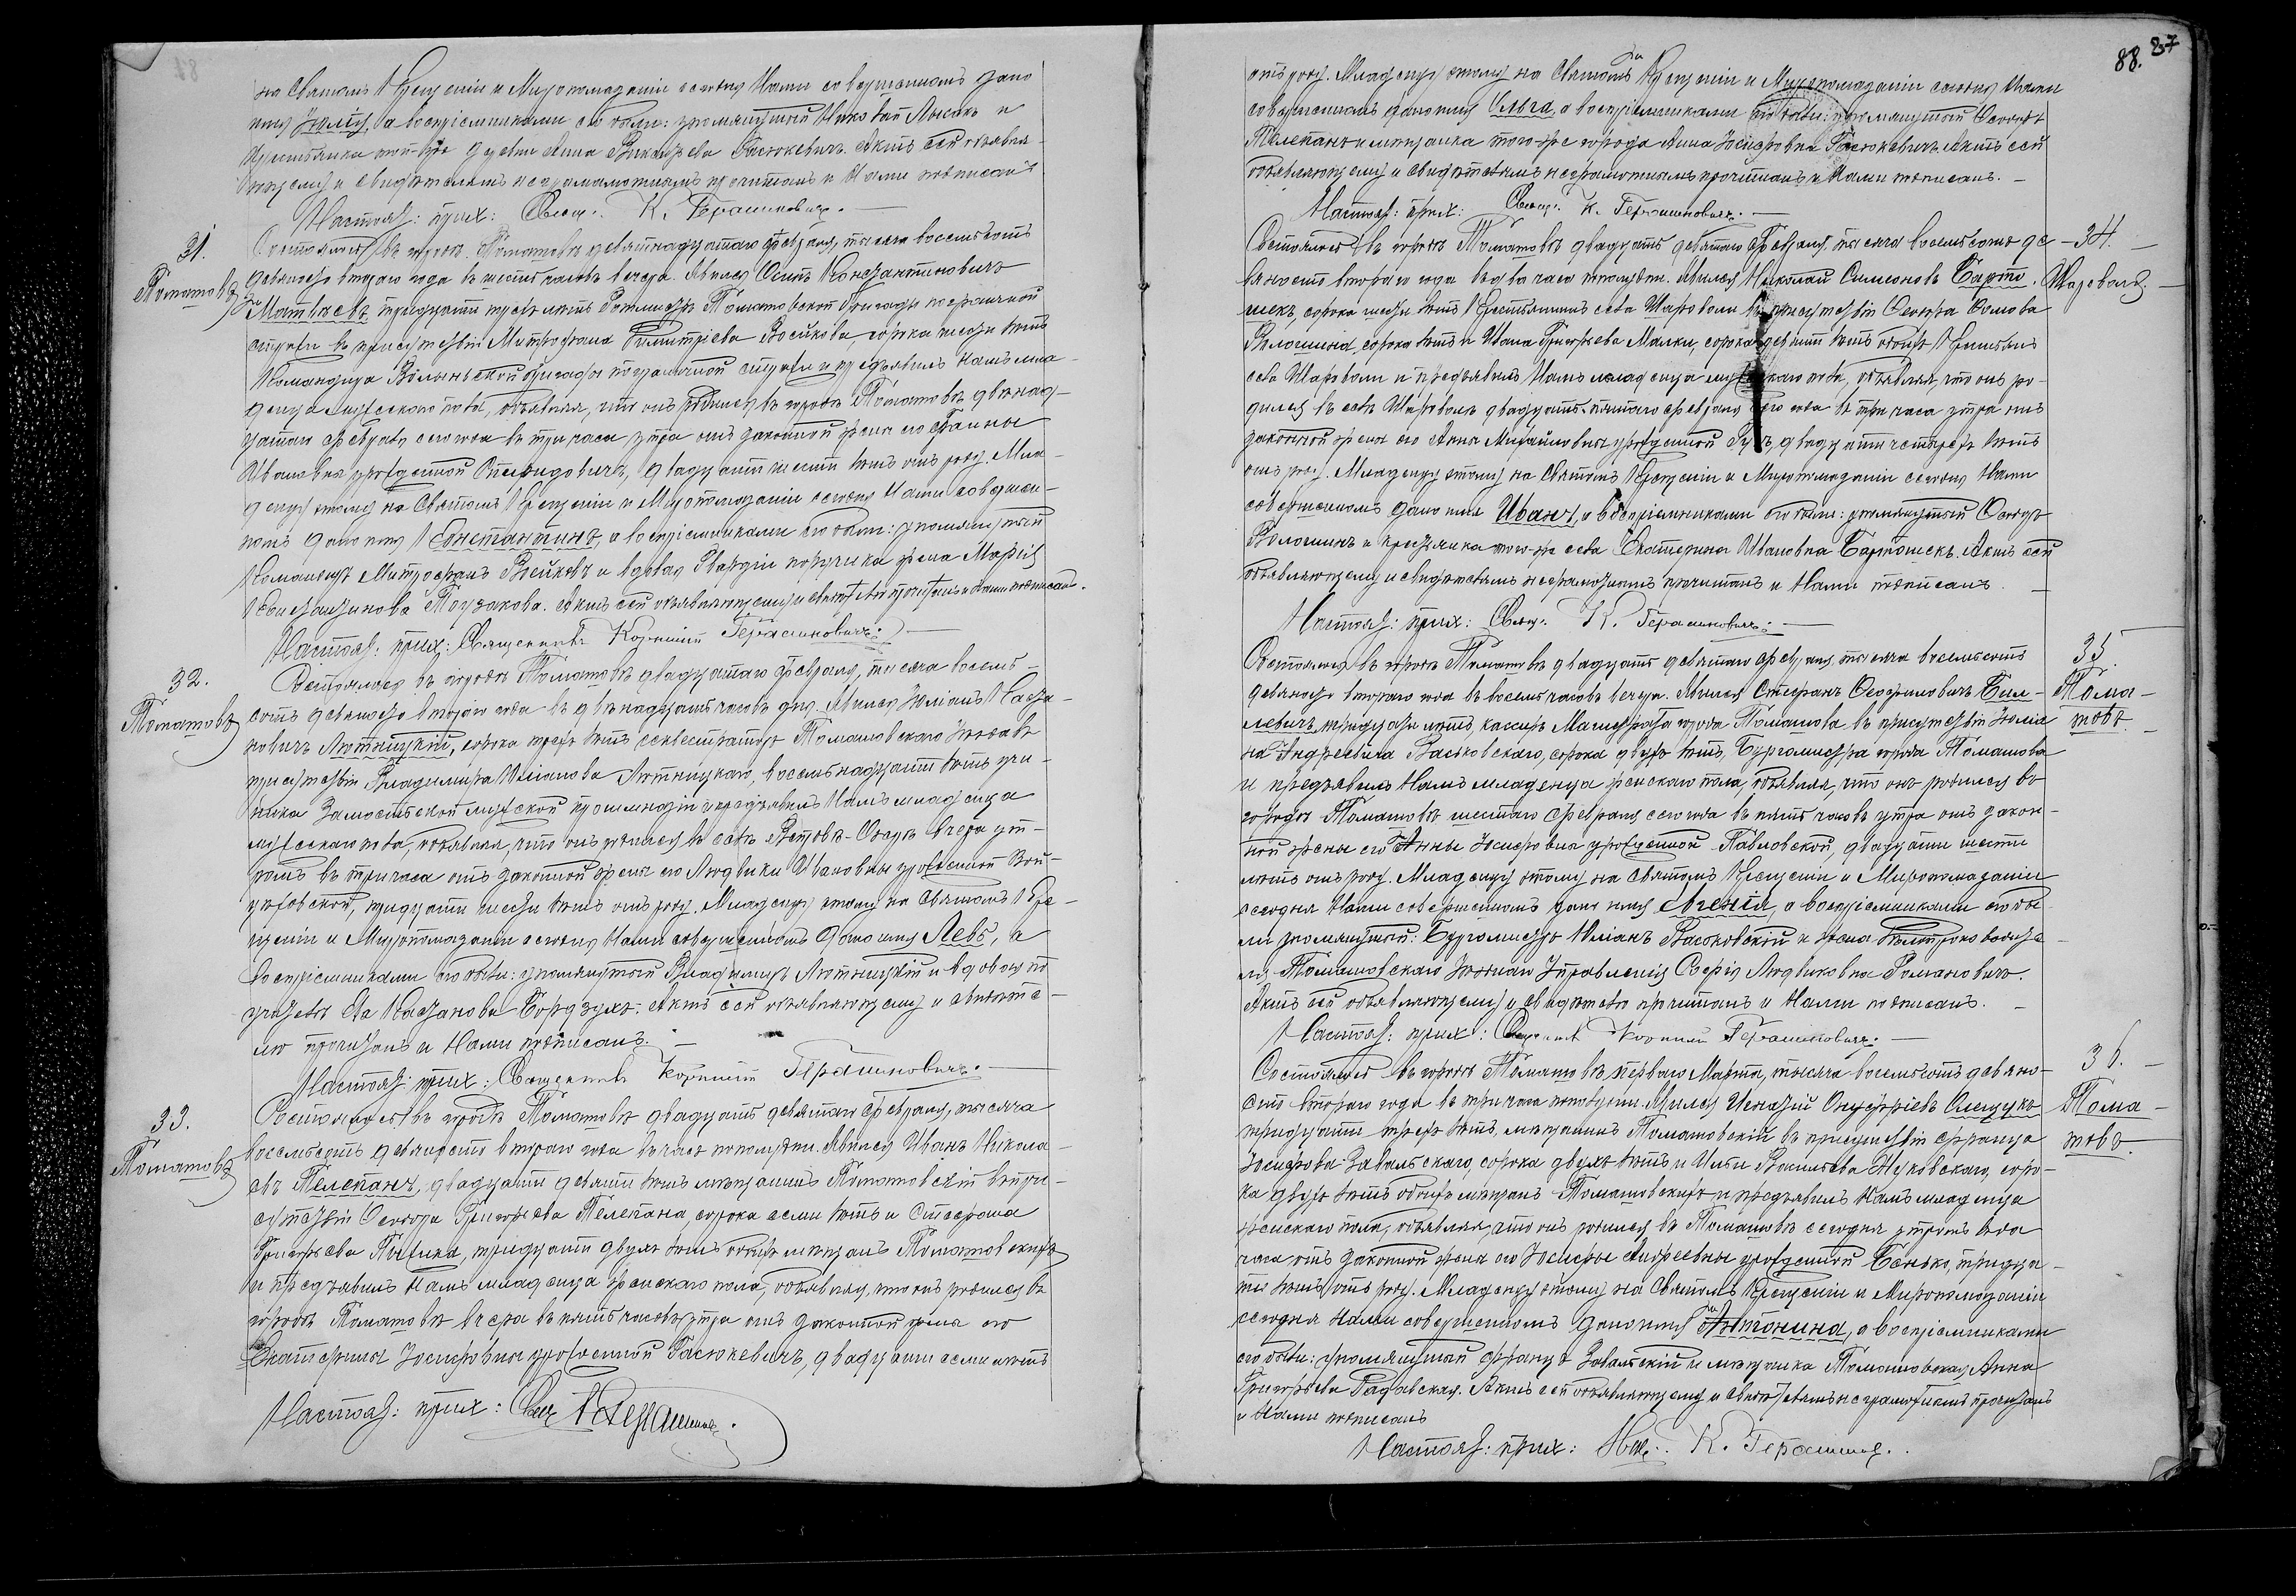 на Святомъ Крещеніи и Миропомазаніи сегодня Нами совершенномъ дано
имя Юлія, а воспріемниками его были: упомянутый Николай Лысакъ и
крестьянка той-же деревни Анна Гасюкевичъ. Актъ сей объявля-
ющему и свидѣтелямъ неграмотнымъ прочитанъ и Нами подписанъ
Настоят: прих: Свящ. К. Герасимовичъ.
31.
Томашовъ
Состоялся въ городѣ Томашовѣ девятнадцатаго февраля, тысяча восемьсотъ
девяносто втораго года въ шесть часовъ вечера. Явился Осипъ Константиновичъ
Матвѣевъ, тридцати трехъ лѣтъ Ротмистръ Томашовской бригады пограничной
стражи въ присутствіи Митрофана Димитріева Воейкова, сорока лѣтъ
Командира Волынской бригады пограничной стражи и предъявилъ Намъ мла-
денца мужескаго пола, объявляя, что онъ родился въ городѣ Томашовѣ двѣнад-
цатаго февраля сего года въ три часа утра отъ законной жены его
Ивановны урожденной двадцати шести лѣтъ отъ роду. Мла-
денцу этому на Святомъ Крещеніи и Миропомазаніи сегодня Нами совершен-
номъ дано имя Константинъ, а воспріемниками его были: упомянутый
Командиръ Митрофанъ Воейковъ и вдова Гвардіи поручика жена Марія
Актъ сей объявляющему и свидѣтелю прочитанъ и Нами подписанъ.
Настоят: прих: Священникъ Корнилій Герасимовичъ.
32.
Томашовъ
Состоялся въ городѣ Томашовѣ двадцатаго февраля, тысяча восемь-
сотъ девяносто втораго года въ двѣнадцать часовъ дня. Явился Юліанъ
новичъ Лѣтницкій, сорока трехъ лѣтъ секвестраторъ Томашовскаго уѣзда въ
присутствіи Владиміра Юліанова Лѣтницкаго, восемнадцати лѣтъ уче-
ника Замостьской мужской прогимназіи и предъявилъ Намъ младенца
мужескаго пола, объявляя, что онъ родился въ селѣ вчера ут-
ромъ въ три часа отъ законной жены его Людвики Ивановны урожденной Вой-
цѣховской, тридцати шести лѣтъ отъ роду. Младенцу этому на Святомъ Кре-
щеніи и Миропомазаніи сегодня Нами совершенномъ дано имя Левъ, а
воспріемниками его были: упомянутый Владиміръ Лѣтницкій и вдова
Ева Актъ сей объявляющему и свидѣте-
лю прочитанъ и Нами подписанъ.
Настоят: прих: Священникъ Корнилій Герасимовичъ.
33.
Томашовъ
Состоялся въ городѣ Томашовѣ двадцать девятаго февраля, тысяча
восемьсотъ девяносто втораго года въ часъ пополудни. Явился Иванъ Никола-
евъ Телепанъ, двадцати девяти лѣтъ мѣщанинъ Томашовскій въ при-
сутствіи Ѳеодора Григорьева Телепана, сорока семи лѣтъ и Стефана
Григорьева тридцати двухъ лѣтъ обоихъ мѣщанъ Томашовскихъ
и предъявилъ Намъ младенца женскаго пола, объявляя, что онъ родился въ
городѣ Томашовѣ вчера въ пять часовъ утра отъ законной жены его
Екатерины Іосифовны урожденной Гасюкевичъ, двадцати семи лѣтъ
Настоят: прих: Свящ. К. Герасимовичъ.
88. 87
отъ роду. Младенцу этому на Святомъ Крещеніи и Миропомазаніи сегодня Нами
совершенномъ дано имя Ольга, а воспріемниками его были: упомянутый Ѳеодоръ
Телепанъ и мѣщанка того-же города Анна Іосифовна Гасюкевичъ. Актъ сей
объявляющему и свидѣтелямъ неграмотнымъ прочитанъ и Нами подписанъ.
Настоят: прих: Свящ. К. Герасимовичъ.
34.
Шароволя
Состоялся въ городѣ Томашовѣ двадцать девятаго февраля, тысяча восемьсотъ де-
вяносто втораго года въ два часа пополудни. Явился Николай Симеоновъ Барто-
шекъ, сорока шести лѣтъ крестьянинъ села Шароволи въ присутствіи Ѳеодора
Волошина, сорока лѣтъ и Ивана Григорьева Малки, сорока девяти лѣтъ обоихъ крестьянъ
села Шароволи и предъявилъ Намъ младенца мужескаго пола, объявляя, что онъ ро-
дился въ селѣ Шароволь двадцать пятаго февраля сего года въ три часа утра отъ
законной жены его Анны Михайловны урожденной двадцати четырехъ лѣтъ
отъ роду. Младенцу этому на Святомъ Крещеніи и Миропомазаніи сегодня Нами
совершенномъ дано имя Иванъ, а воспріемниками его были: упомянутый Ѳеодоръ
Волошинъ и крестьянка того-же села Екатерина Ивановна Бартошекъ. Актъ сей
объявляющему и свидѣтелямъ неграмотнымъ прочитанъ и Нами подписанъ.
Настоят: прих: Свящ. К. Герасимовичъ.
35.
Тома-
шовъ
Состоялся въ городѣ Томашовѣ двадцать девятаго февраля, тысяча восемьсотъ
девяносто втораго года въ восемь часовъ вечера. Явился Стефанъ Ѳеофиловичъ Бил-
левичъ, тридцати лѣтъ, кассиръ Магистрата города Томашова въ присутствіи Юліа-
на Андреевича Васьковскаго, сорока двухъ лѣтъ, Бургомистра города Томашова
и предъявилъ Намъ младенца женскаго пола, объявляя, что онъ родился въ
городѣ Томашовѣ шестаго февраля сего года въ пять часовъ утра отъ закон-
ной жены его Анны Іосифовны урожденной Павловской, двадцати шести
лѣтъ отъ роду. Младенцу этому на Святомъ Крещеніи и Миропомазаніи
сегодня Нами совершенномъ дано имя Евгенія, а воспріемниками его бы-
ли упомянутый: Бургомистръ Юліанъ Васьковскій и жена дѣлопроизводите-
ля Томашовскаго Уѣзднаго Управленія Софія Людвиковна Романовичъ.
Актъ сей объявляющему и свидѣтелю прочитанъ и Нами подписанъ.
Настоят: прих: Священникъ Корнилій Герасимовичъ.
36.
Тома-
шовъ
Состоялся въ городѣ Томашовѣ перваго Марта, тысяча восемьсотъ девяно-
сто втораго года въ три часа пополудни. Явился Игнатій Онуфріевъ Олещукъ
тридцати трехъ лѣтъ, мѣщанинъ Томашовскій въ присутствіи Франца
Іосифова Завальскаго, сорока двухъ лѣтъ и Ильи Васильева Жуковскаго, соро-
ка двухъ лѣтъ обоихъ мѣщанъ Томашовскихъ и предъявилъ Намъ младенца
женскаго пола, объявляя, что онъ родился въ Томашовѣ сегодня утромъ въ два
часа отъ законной жены его Іосифы Андреевны урожденной Бенько, тридца-
ти лѣтъ отъ роду. Младенцу этому на Святомъ Крещеніи и Миропомазаніи
сегодня Нами совершенномъ дано имя Антонина, а воспріемниками
его были: упомянутый Францъ Завальскій и мѣщанка Томашовская, Анна
Григорьева Радавская. Актъ сей объявляющему и свидѣтелямъ неграмотнымъ прочитанъ
и Нами подписанъ
Настоят: прих: К. Герасимовичъ.